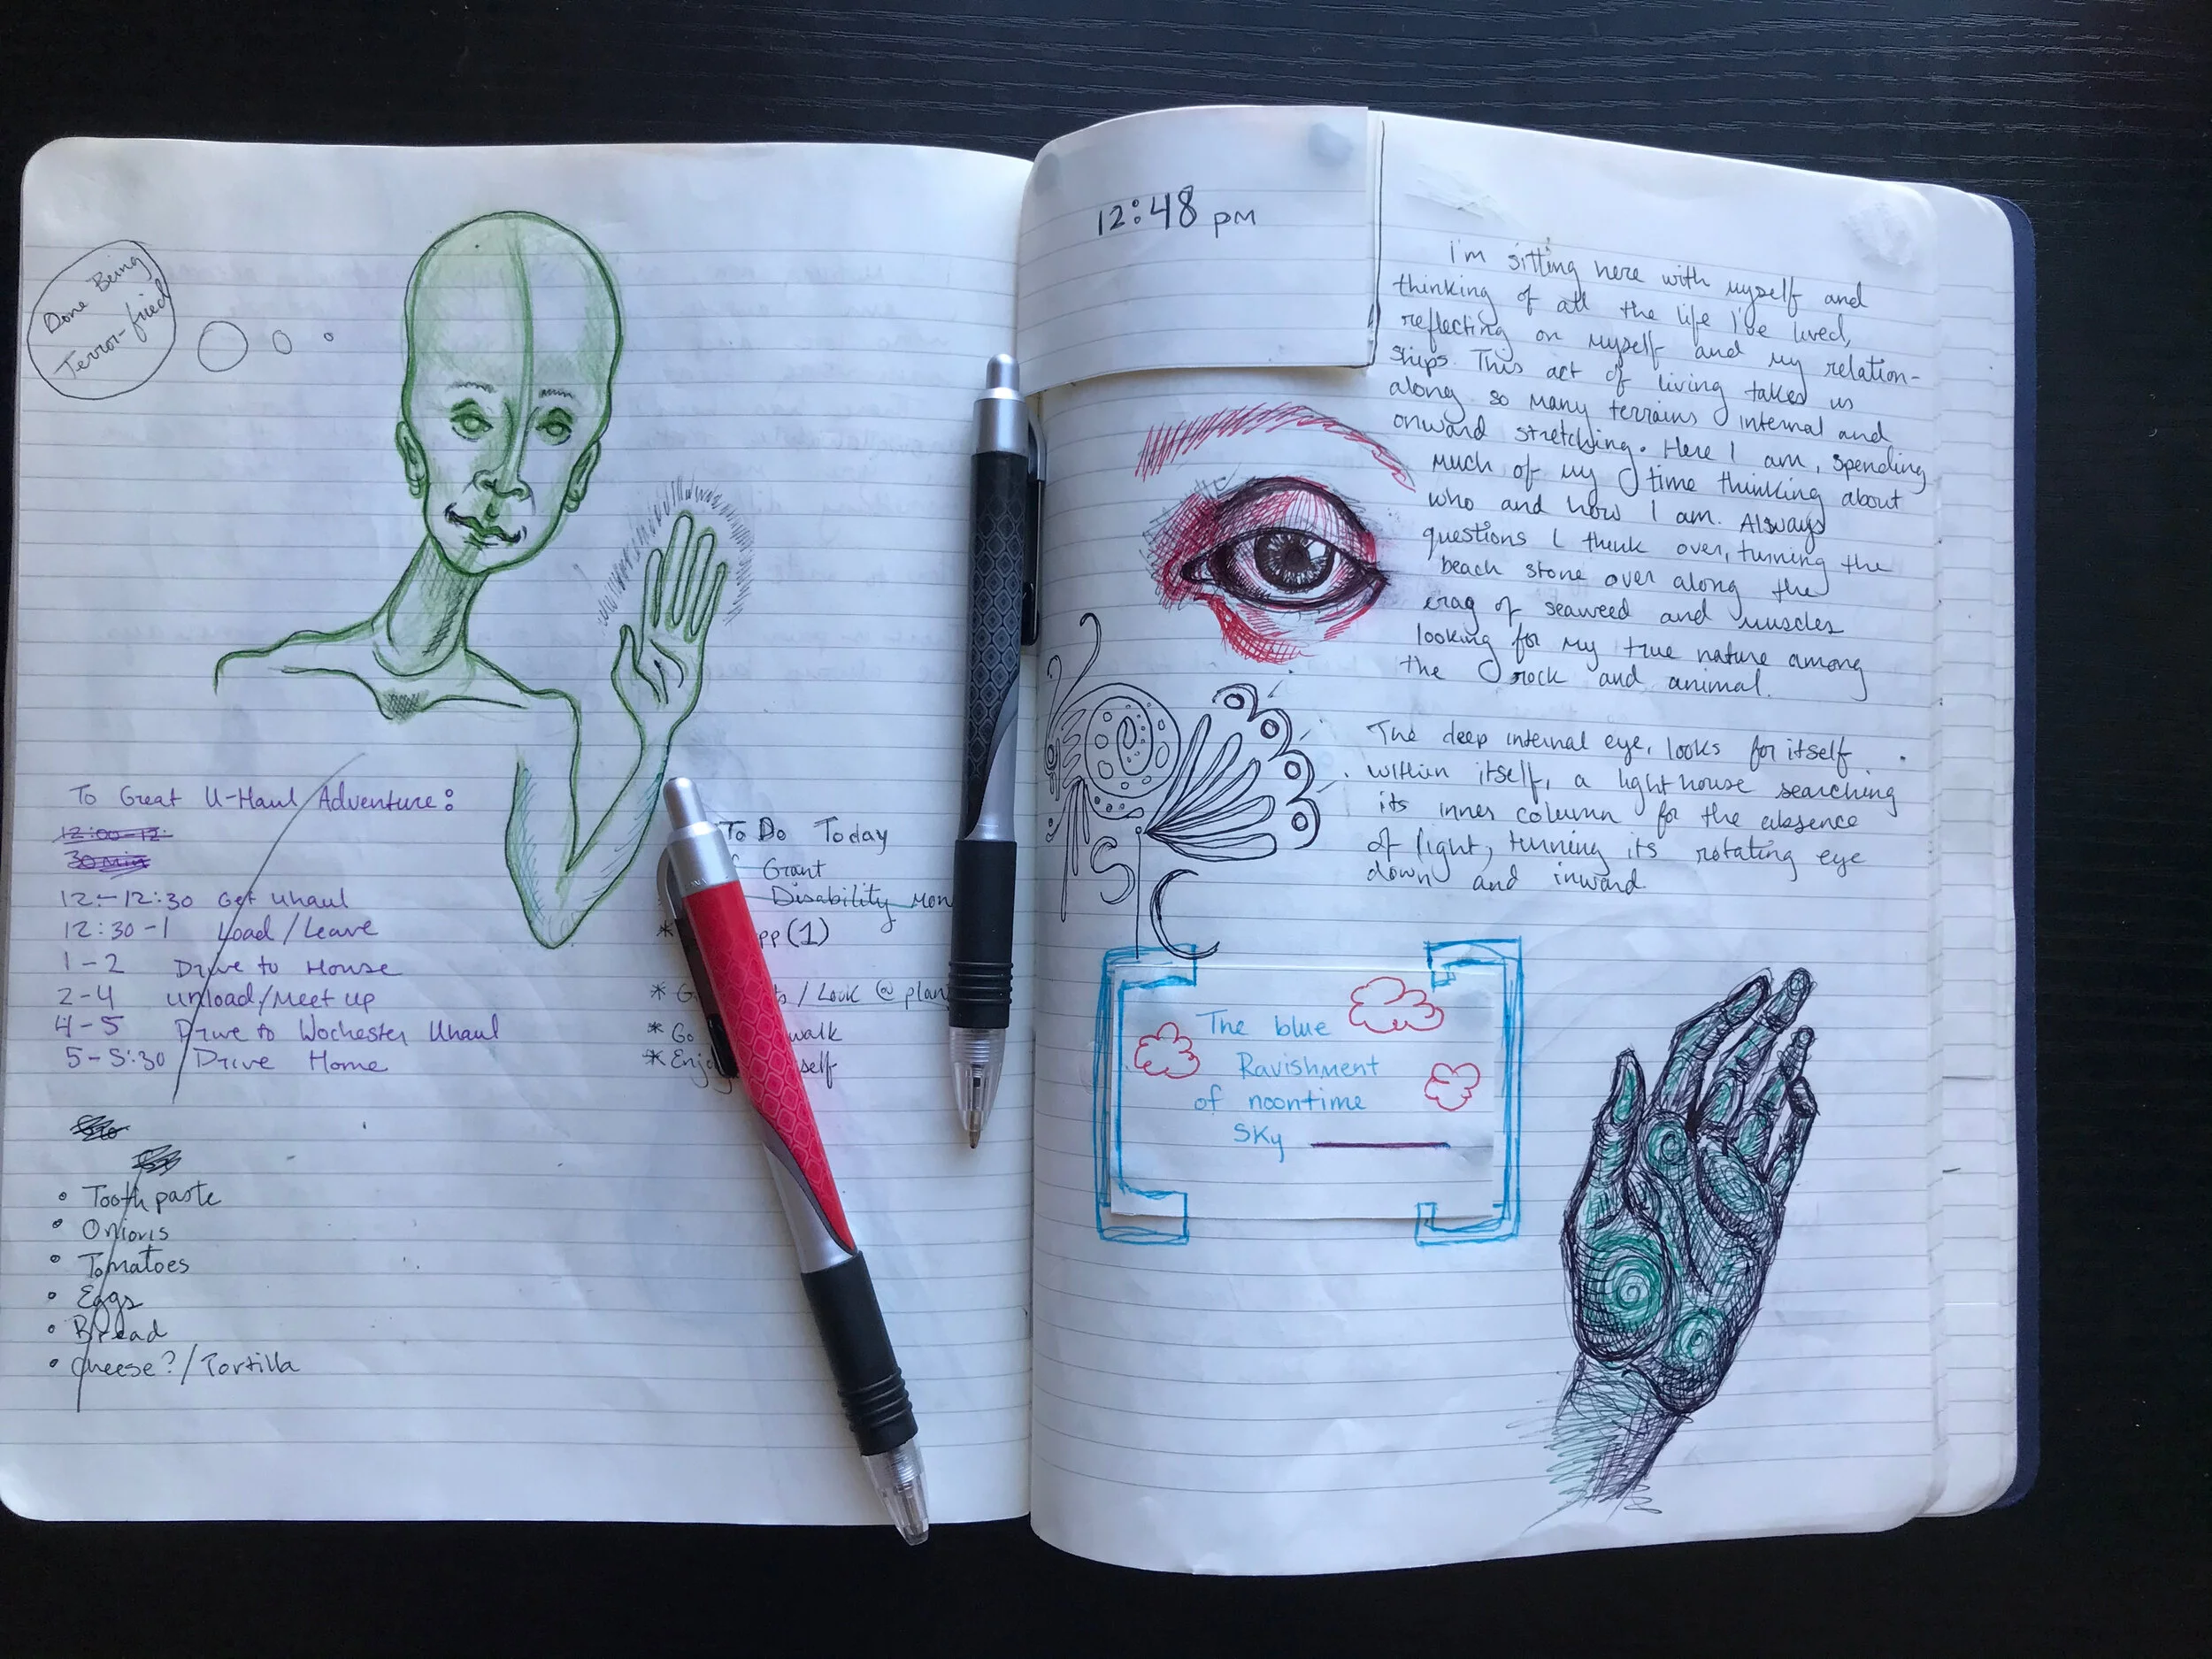 Done Being
Terror-fried
To Great U-Haul Adventure:
12:00-12:
30 Min
12-12:30 Get Uhaul
12:30-1 Load/Leave
1-2 Drive to House
2-4 Unload/Meet up
4-5 Drive to Wochester Uhaul
5-5:30 Drive Home
• Toothpaste
• Onions
• Tomatoes
• Eggs
• Bread
• Cheese?/Tortilla
To Do Today
Grant
Disability Mon
* pp (1)
* G / Look @ plan
* Go walk
* Enjo self
12:48 pm
I'm sitting here with myself and
thinking of all the life I've lived,
reflecting on myself and my relation-
ships. This act of living takes us
along so many terrains internal and
onward stretching. Here I am, spending
much of my time thinking about
who and how I am. Always
questions I think over, turning the
beach stone over along the
crag of seaweed and muscles
looking for my true nature among
the rock and animal.
The deep internal eye, looks for itself
within itself, a lighthouse searching
its inner column for the absence
of light, turning its rotating eye
down and inward
The blue
Ravishment
of noontime
Sky